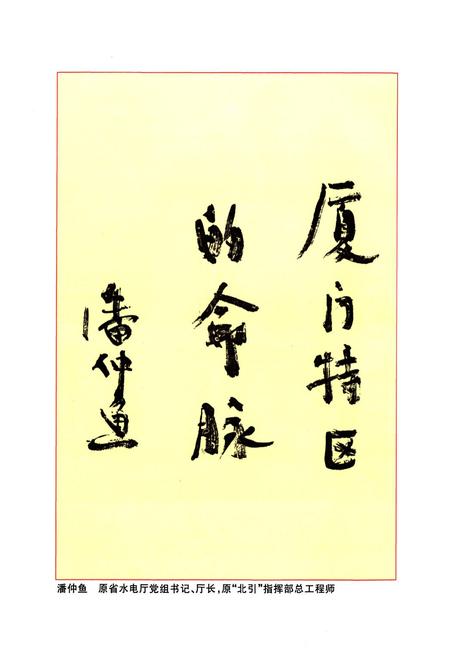 厦门特区
的命脉
潘仲鱼
潘仲鱼 原省水电厅党组书记、厅长,原“北引”指挥部总工程师